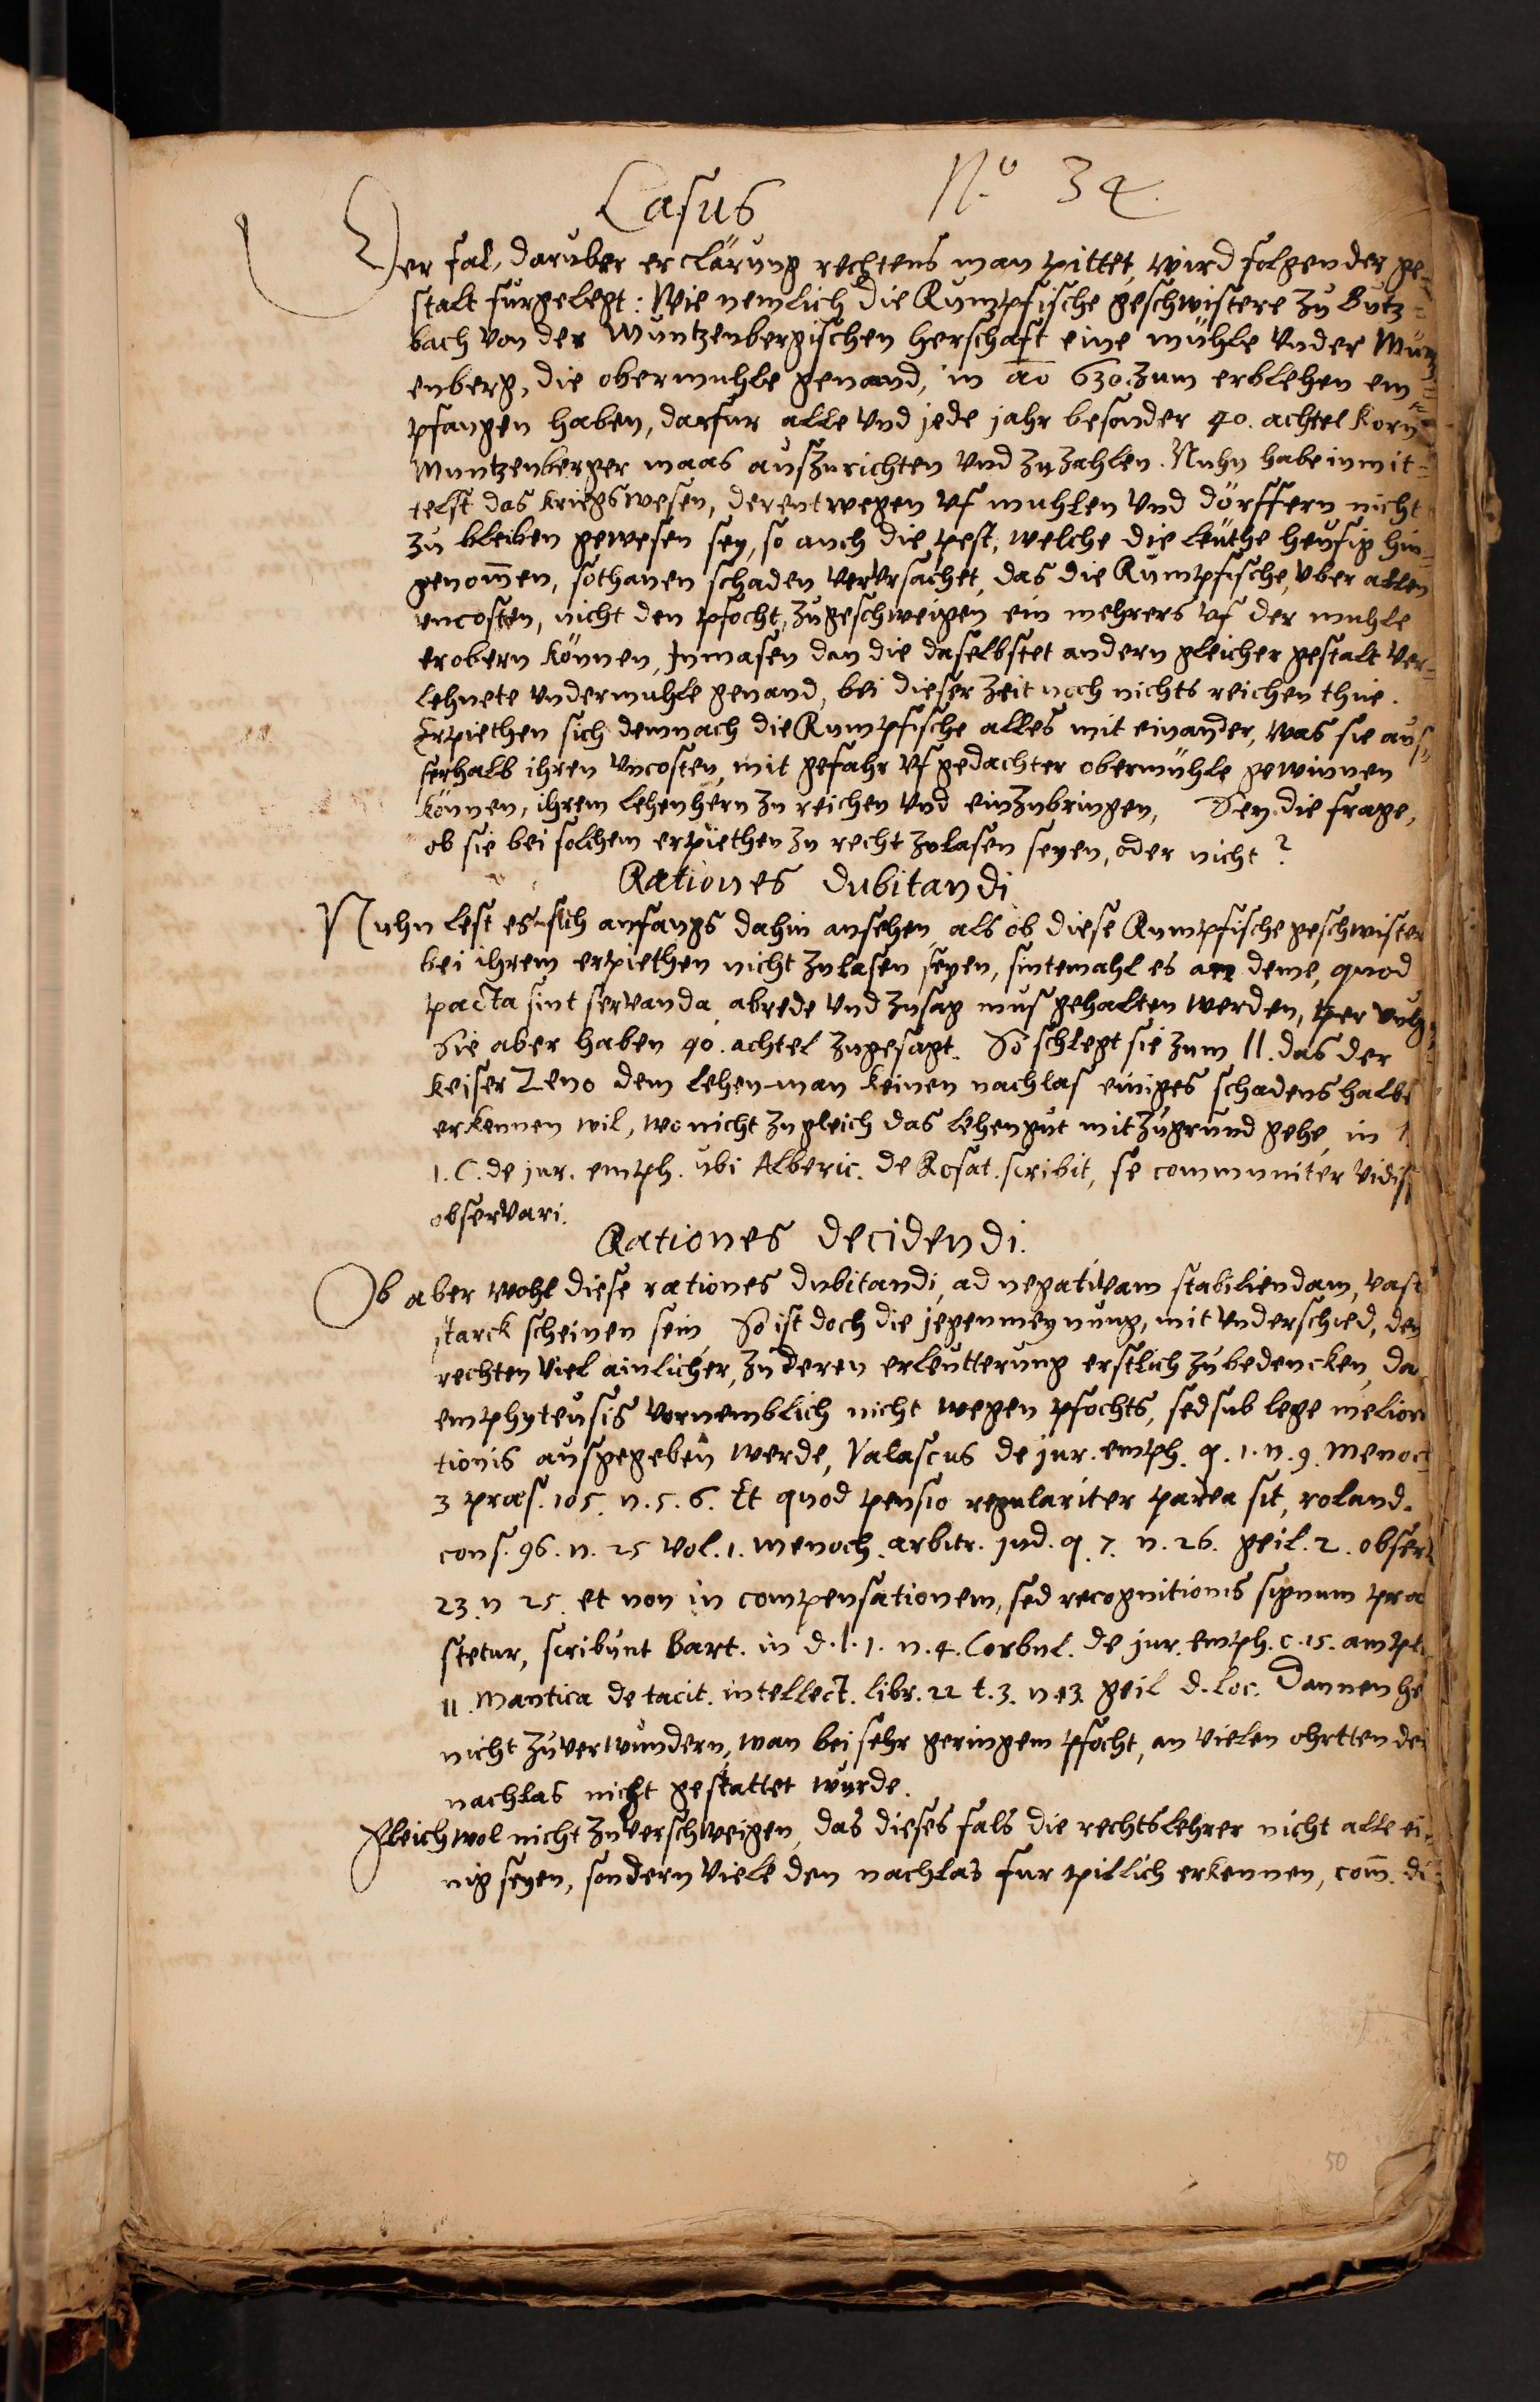 Casus
No 34.
Der fal, daruber erclärung rechtens man pittet, wird folgender ge-
stalt furgelegt: Wie nemlich die Rumpfische geschwistere zu Butz-
bach von der Muntzenbergischen herschaft eine mühle vnder Mün
enberg, die obermuhle genand, in ao 630. zum erblehen em-
pfangen haben, darfur alle vnd jede jahr besonder 40. achtel korn
Muntzenberger maas auszurichten vnd zu zahlen. Nuhn habe inmit-
telst das kriegswesen, derentwegen vf muhlen vnd dörffern nicht
zu bleiben gewesen sey, so auch die pest, welche die leuthe heufig hin-
genommen, sothanen schaden verursachet, das die Rumpfische, vber allen
vncosten, nicht den pfocht, zugeschweigen ein mehrers vf der muhle
erobern können, Jnmasen dan die daselbstet andern gleicher gestalt ver-
lehnete vndermuhle genand, bei dieser zeit noch nichts reichen thue.
Erpiethen sich demnach die Rumpfische alles mit einander, was sie aus-
serhalb ihren vncosten, mit gefahr vf gedachter obermühle gewinnen
können, ihrem lehenhern zu reichen vnd einzubringen, Sey die frage,
ob sie bei solchem erpiethen zu recht zulasen seyen, oder nicht?
Rationes dubitandi
Nuhn lest es sich anfangs dahin ansehen, als ob diese Rumpfische geschwister
bei ihrem erpiethen nicht zulasen seyen, sintemahl es an deme, quod
pacta sint servanda, abrede vnd zusag mus gehalten werden, per vulg.
Sie aber haben 40. achtel zugesagt. So schlegt sie zum II. das der
keiser Zeno dem lehen-man keinen nachlas einiges schadens halbe
erkennen wil, wo nicht zugleich das lehengut mit zugrund gehe, in
1. C. de jur. emph. ubi Alberic. de Rosat. scribit, se communiter vidis
observari.
Rationes decidendi.
Ob aber wohl diese rationes dubitandi, ad negativam stabiliendam, vast
starck scheinen sein, So ist doch die jegenmeynung, mit vnderschied, den
rechten viel ainlicher, zu deren erleutterung erstlich zubedencken, da
emphyteusis vornemblich nicht wegen pfochts, sed sub lege meliora
tionis ausgegeben werde, Valascus de jur. emph. q. 1. n. 9. Menoch
3 praes. 105. n. 5. 6. Et quod pensio regulariter parva sit, roland.
cons. 96. n. 25 vol. 1. menoch. arbitr. jud. q. 7. n. 26. geil. 2. observ
23. n 25. et non in compensationem, sed recognitionis signum prae
stetur, scribunt Bart. in d. l. 1. n. 4. Corbul. de jur. emph. c. 15. ampl.
11. Mantica de tacit. intellect. libr. 22 t. 3. n. 3. geil d. loc. Dannenhe
nicht zuverwundern, wan bei sehr geringem pfocht, an vielen ohrtten de
nachlas nicht gestattet wurde.
Gleichwol nicht zuverschweigen, das dieses fals die rechtslehrer nicht alle ei-
nig seyen, sondern viele den nachlas fur pillich erkennen, com. d
50